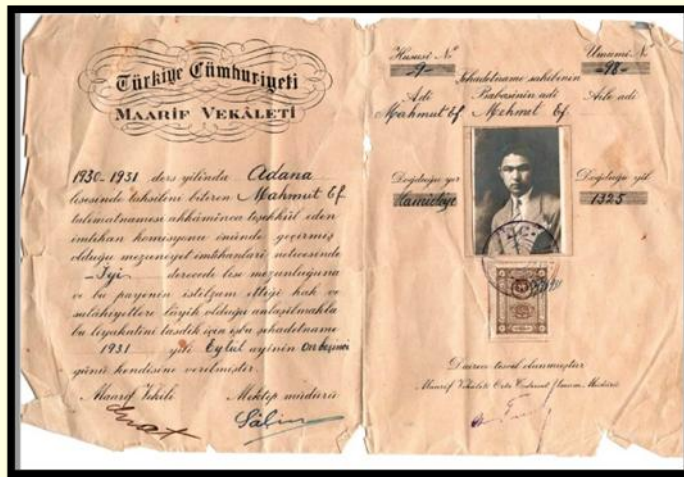 Türkiye Cümhuriyeti
MAARİF VEKÂLETİ
1930-1931 ders yilinda Adana
lisesinde tahsilini bitiren Mahmut Ef
talimatnamesi ahkâmınca teşekkül eden
imtihan komisyonu önünde geçirmiş
olduğu mezuniyet imtihanlari neticesinde
-İyi- derecede lise mezunluğuna
ve bu payenin istilzam ettiği hak ve
salâhiyetlere lâyik olduğu anlaşilmakla
bu liyakatini tasdik için işbu şehadetname
1931 yili Eylül ayinin on beşinci
günü kendisine verilmiştir.
Maarif Vekili Mektep müdürü
Salim
Hususî № Umumî №
-9- -98-
Şehadetname sahibinin
Adi Babasinin adi Aile adi
Mahmut Ef. Mehmet Ef.
Doğduğu yer Doğduğu yil
Hamidiye 1325
T.C.
Dairece tescil olunmuştur
Maarif Vekâleti Orta Tedrisat Umum Müdürü